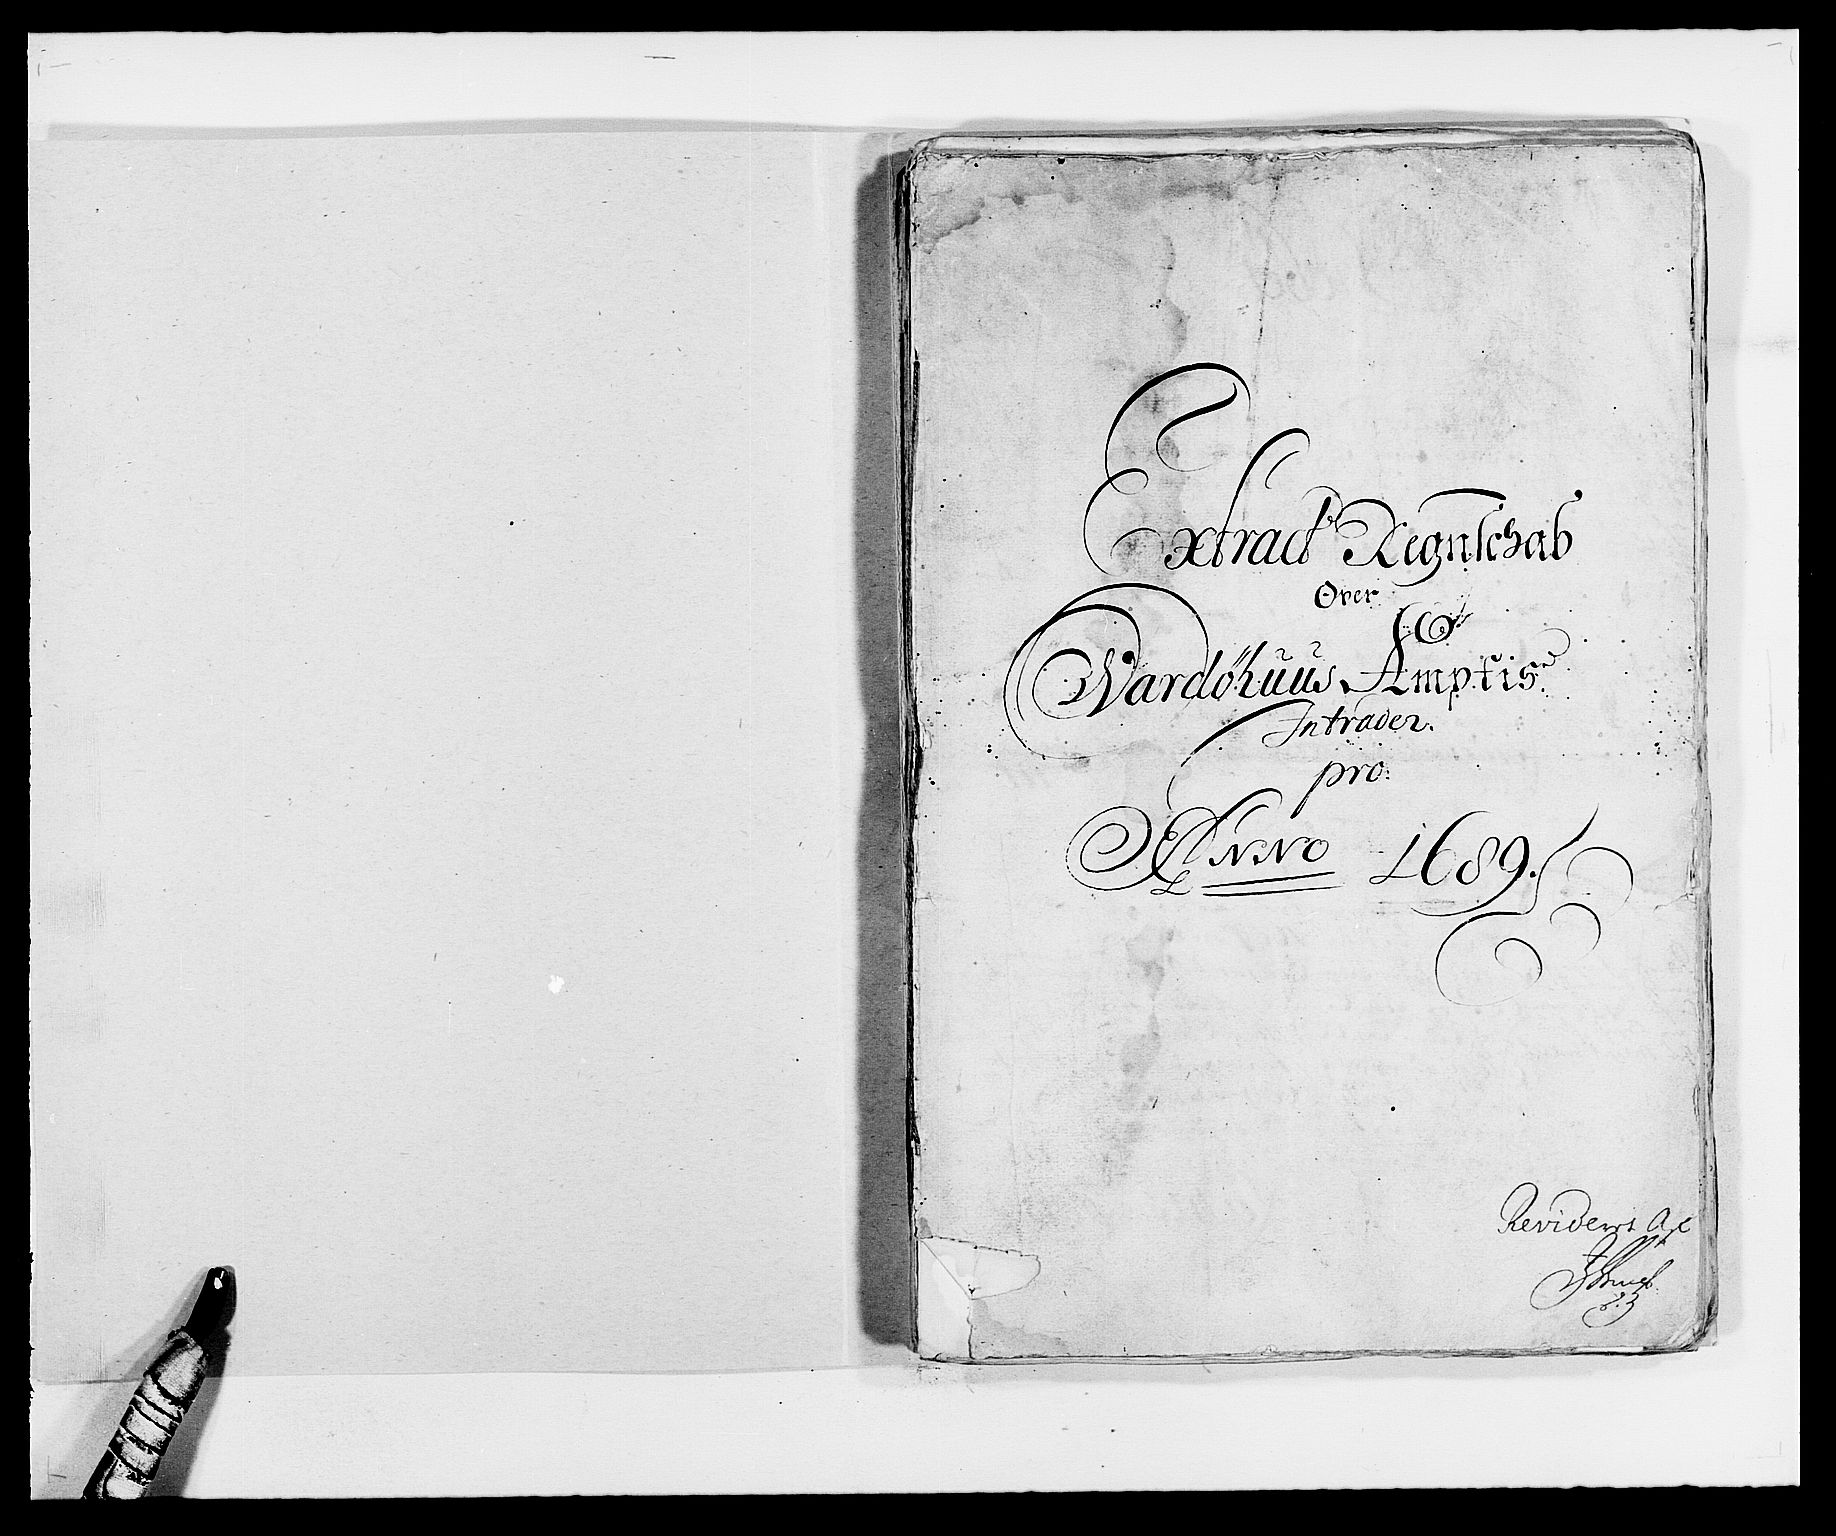 Extract Regnschab
Over
Wardøhuus Amptis
Intrader.
pro
Anno 1689.
Revideret